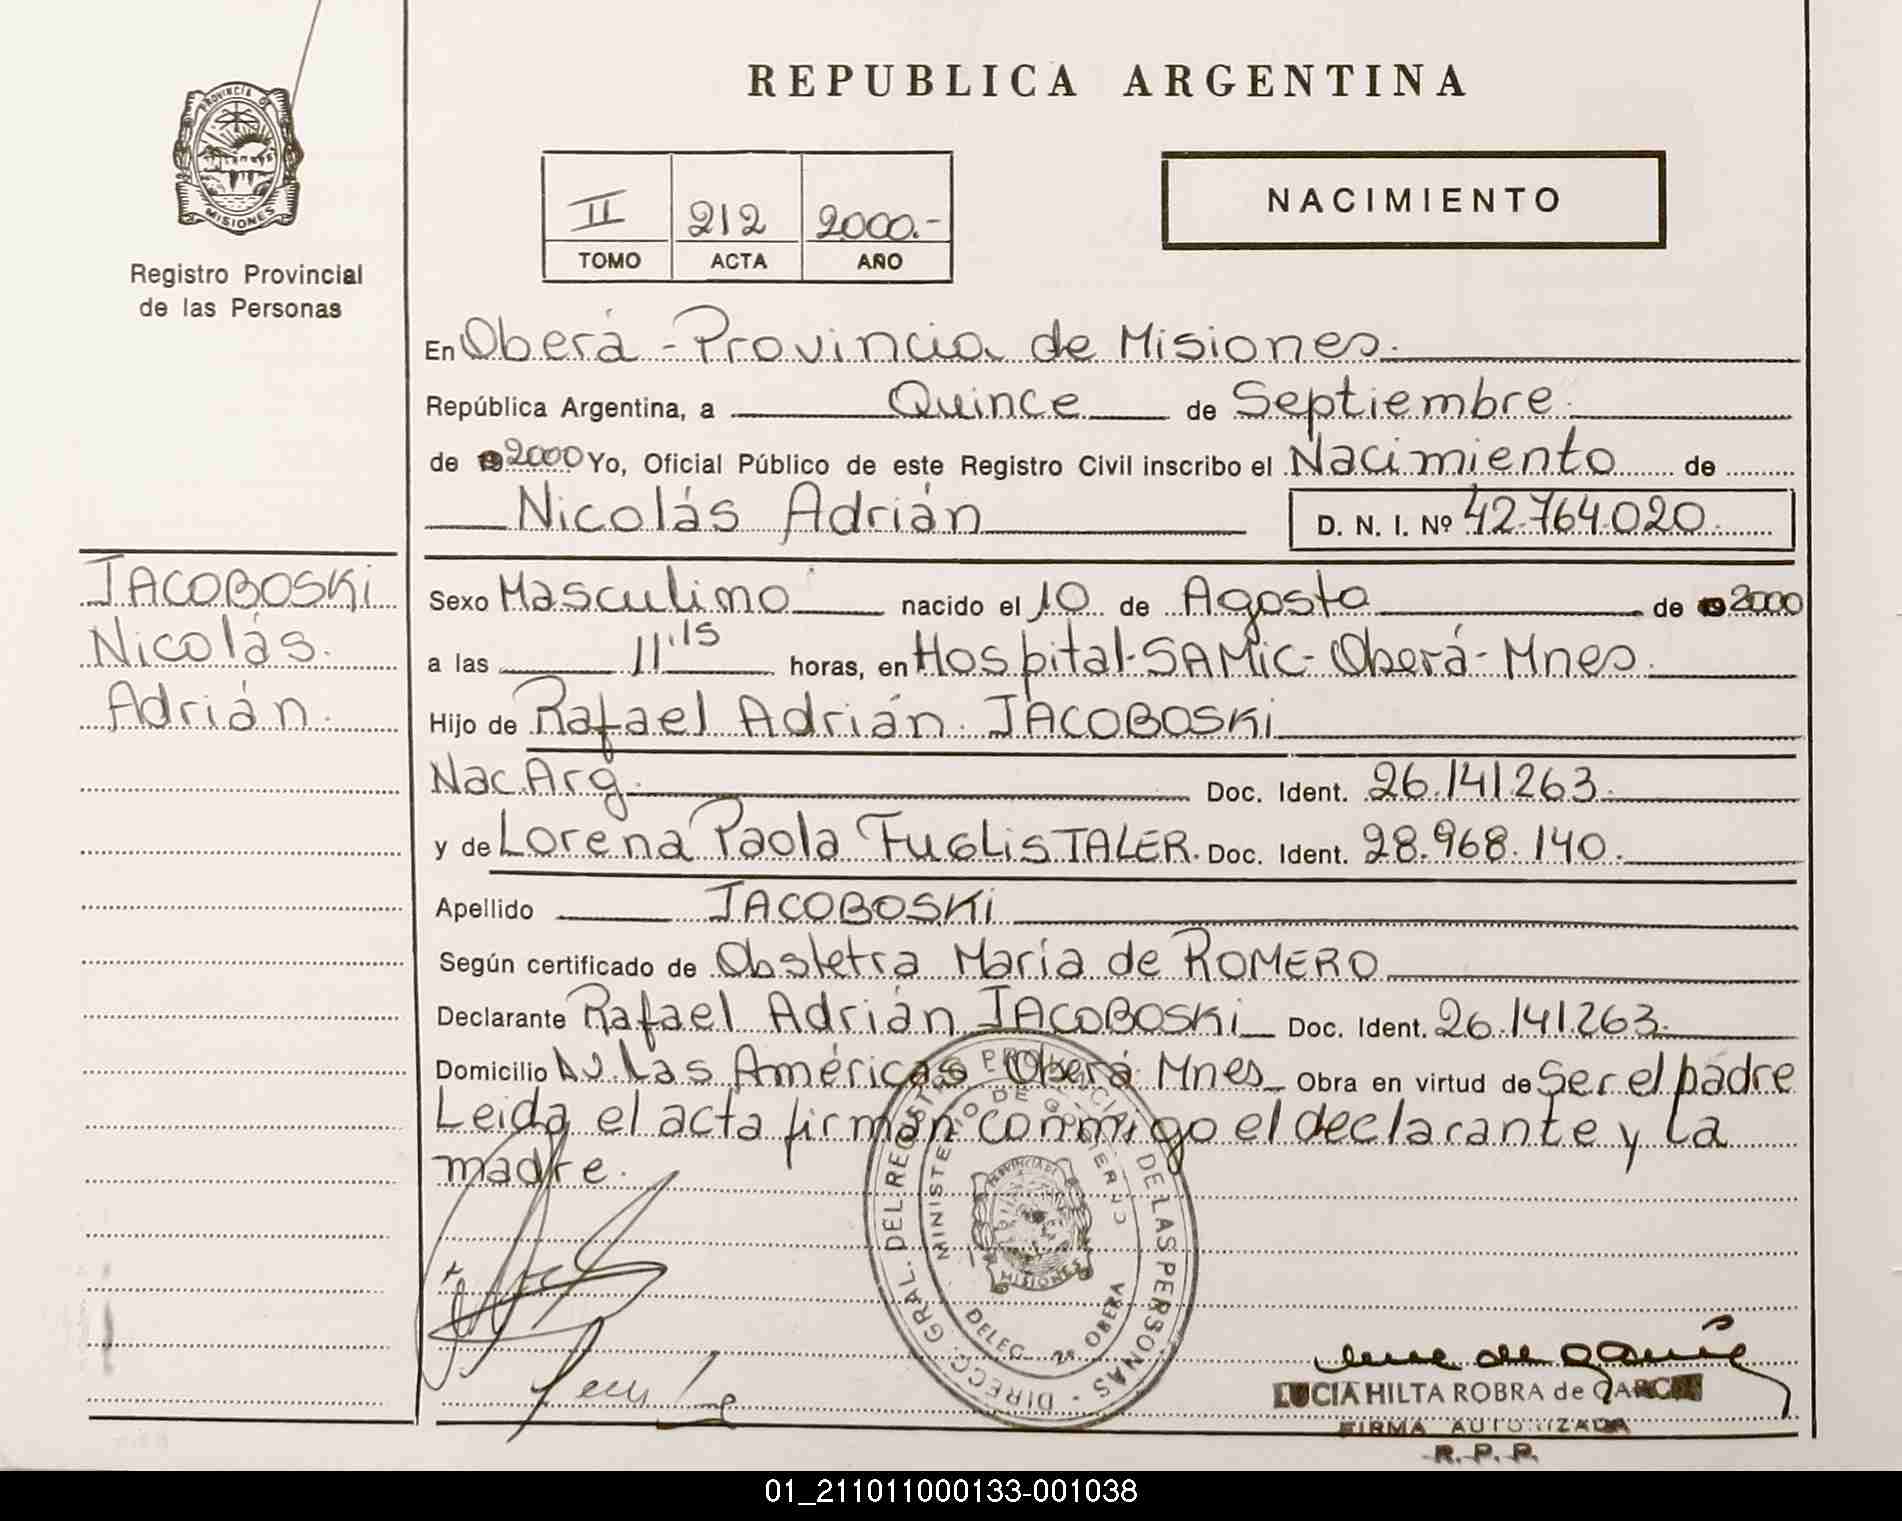 REPUBLICA ARGENTINA
PROVINCIA DE
MISIONES
Registro Provincial
de las Personas
II 212 2000.-
TOMO ACTA AÑO
NACIMIENTO
En Oberá - Provincia de Misiones.
República Argentina, a Quince de Septiembre.
de 2000 Yo, Oficial Público de este Registro Civil inscribo el Nacimiento de
Nicolás Adrián D. N. I. Nº 42.764.020.
JACOBOSKi
Nicolás.
Adrián.
Sexo Masculino nacido el 10 de Agosto de 2000
a las 11'15 horas, en Hospital-SAMiC-Oberá-Mnes.
Hijo de Rafael Adrián JACOBOSKi
Nac. Arg. Doc. Ident. 26.141.263.
y de Lorena Paola FUGLiSTALER. Doc. Ident. 28.968.140.
Apellido JACOBOSKi
Según certificado de Obstetra María de ROMERO
Declarante Rafael Adrián JACOBOSKi Doc. Ident. 26.141.263.
Domicilio Av. Las Américas Oberá Mnes Obra en virtud de Ser el padre
Leida el acta firman conmigo el declarante y la
madre.
DIRECC. GRAL. DEL REGISTRO PROVINCIAL DE LAS PERSONAS -
MINISTERIO DE GOBIERNO
PROVINCIA DE
MISIONES
DELEG. 2ª OBERA
LUCIA HILTA ROBRA de GARCIA
FIRMA AUTORIZADA
R. P. P.
01_211011000133-001038